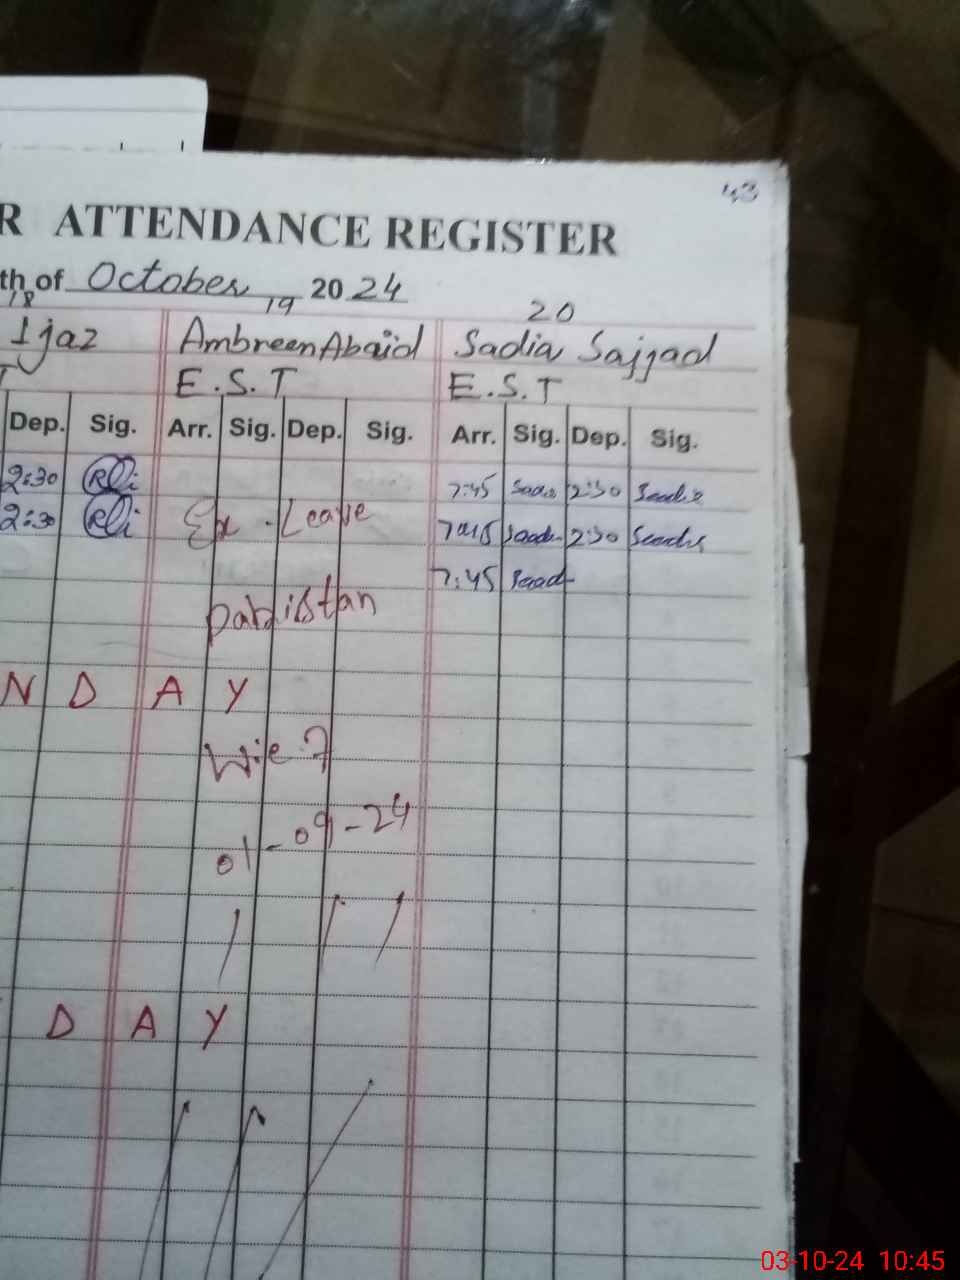 43
R ATTENDANCE REGISTER
th of October 20 24
18 19 20
Ijaz Ambreen Abaid Sadia Sajjad
T E.S.T E.S.T
Dep. Sig. Arr. Sig. Dep. Sig. Arr. Sig. Dep. Sig.
2:30 7:45 2:30 Saadia
2:30 Ex. Leave 7:45 Saad 2:30
7:45 Saad
Pakistan
N D A Y
W.e.f
01-09-24
D A Y
03-10-24 10:45